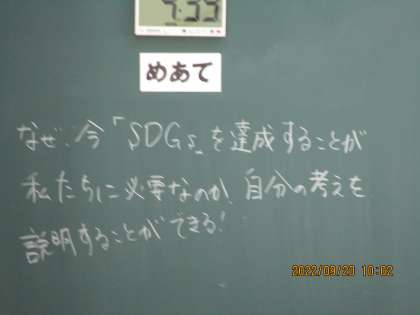 めあて
なぜ、今「SDGs」を達成することが
私たちに必要なのか、自分の考えを
説明することができる!
2022/09/20 10:02